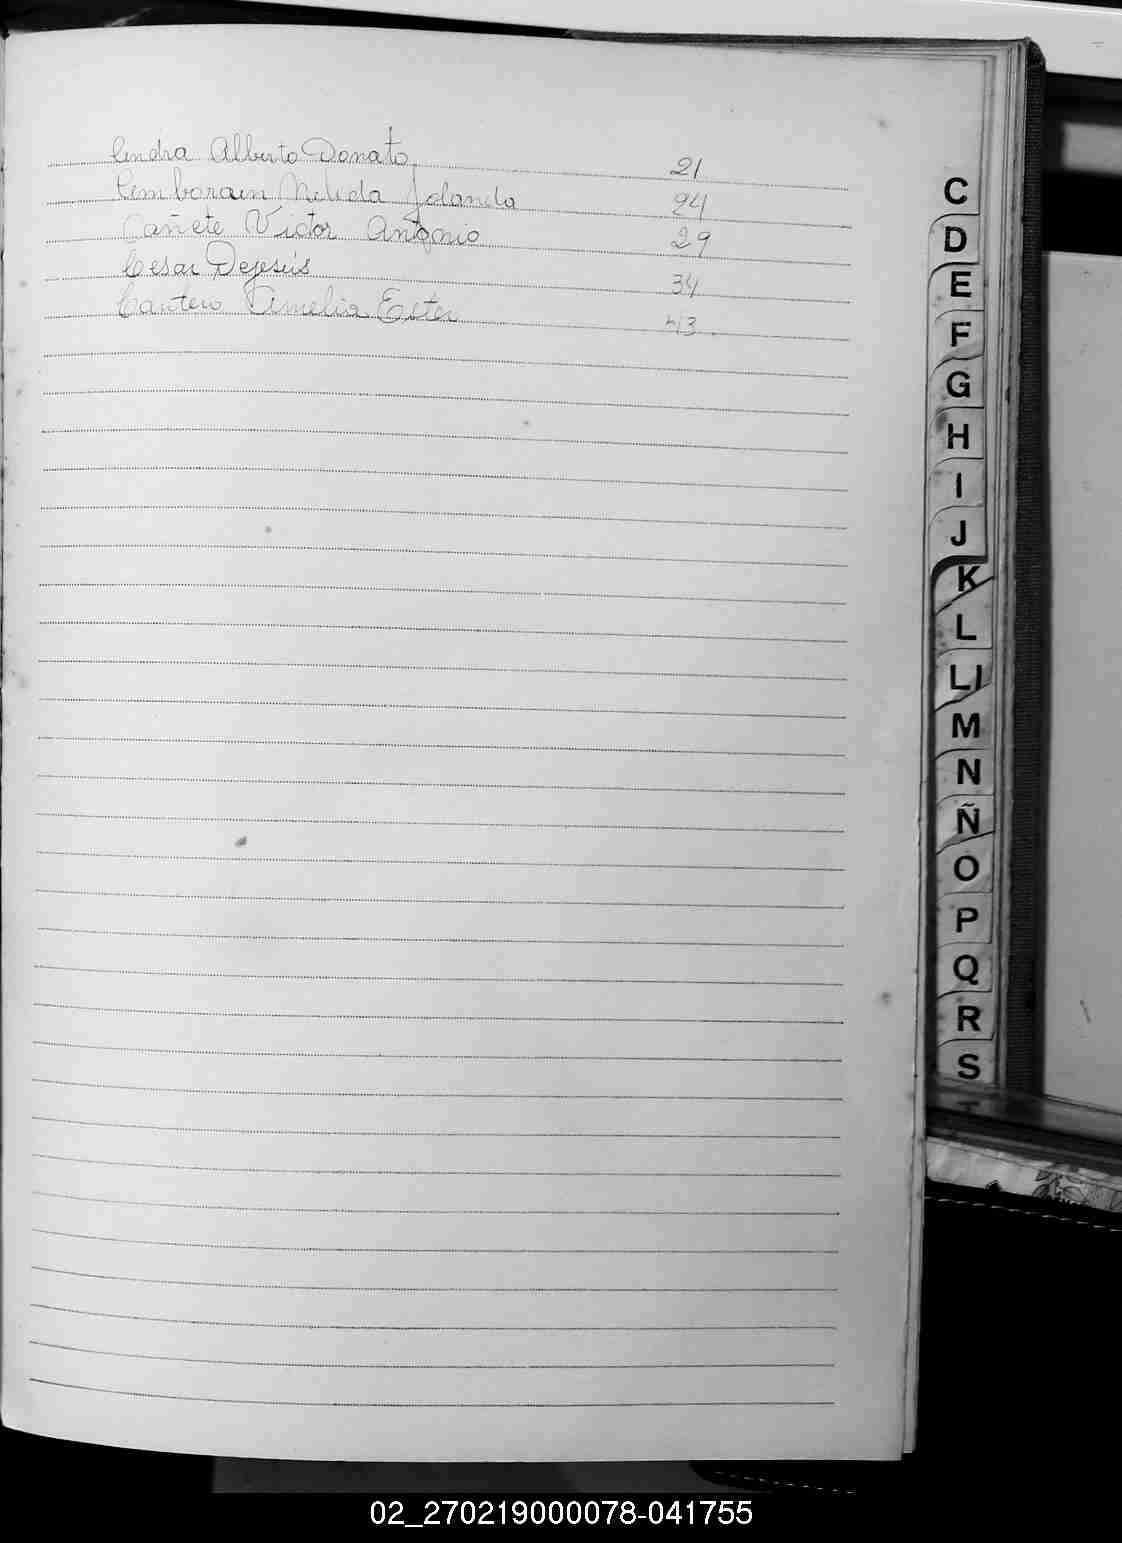 Cendra Alberto Donato 21
Cemborain Nelida Jolanda 24
Cañete Victor Antonio 29
Cesar Dejesús 34
Cantero Amelia Ester 43
C
D
E
F
G
H
I
J
K
L
Ll
M
N
Ñ
O
P
Q
R
S
T
02_270219000078-041755